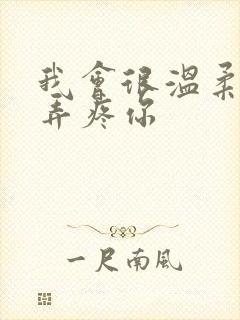 我會很溫柔
弄疼你
一尺南風